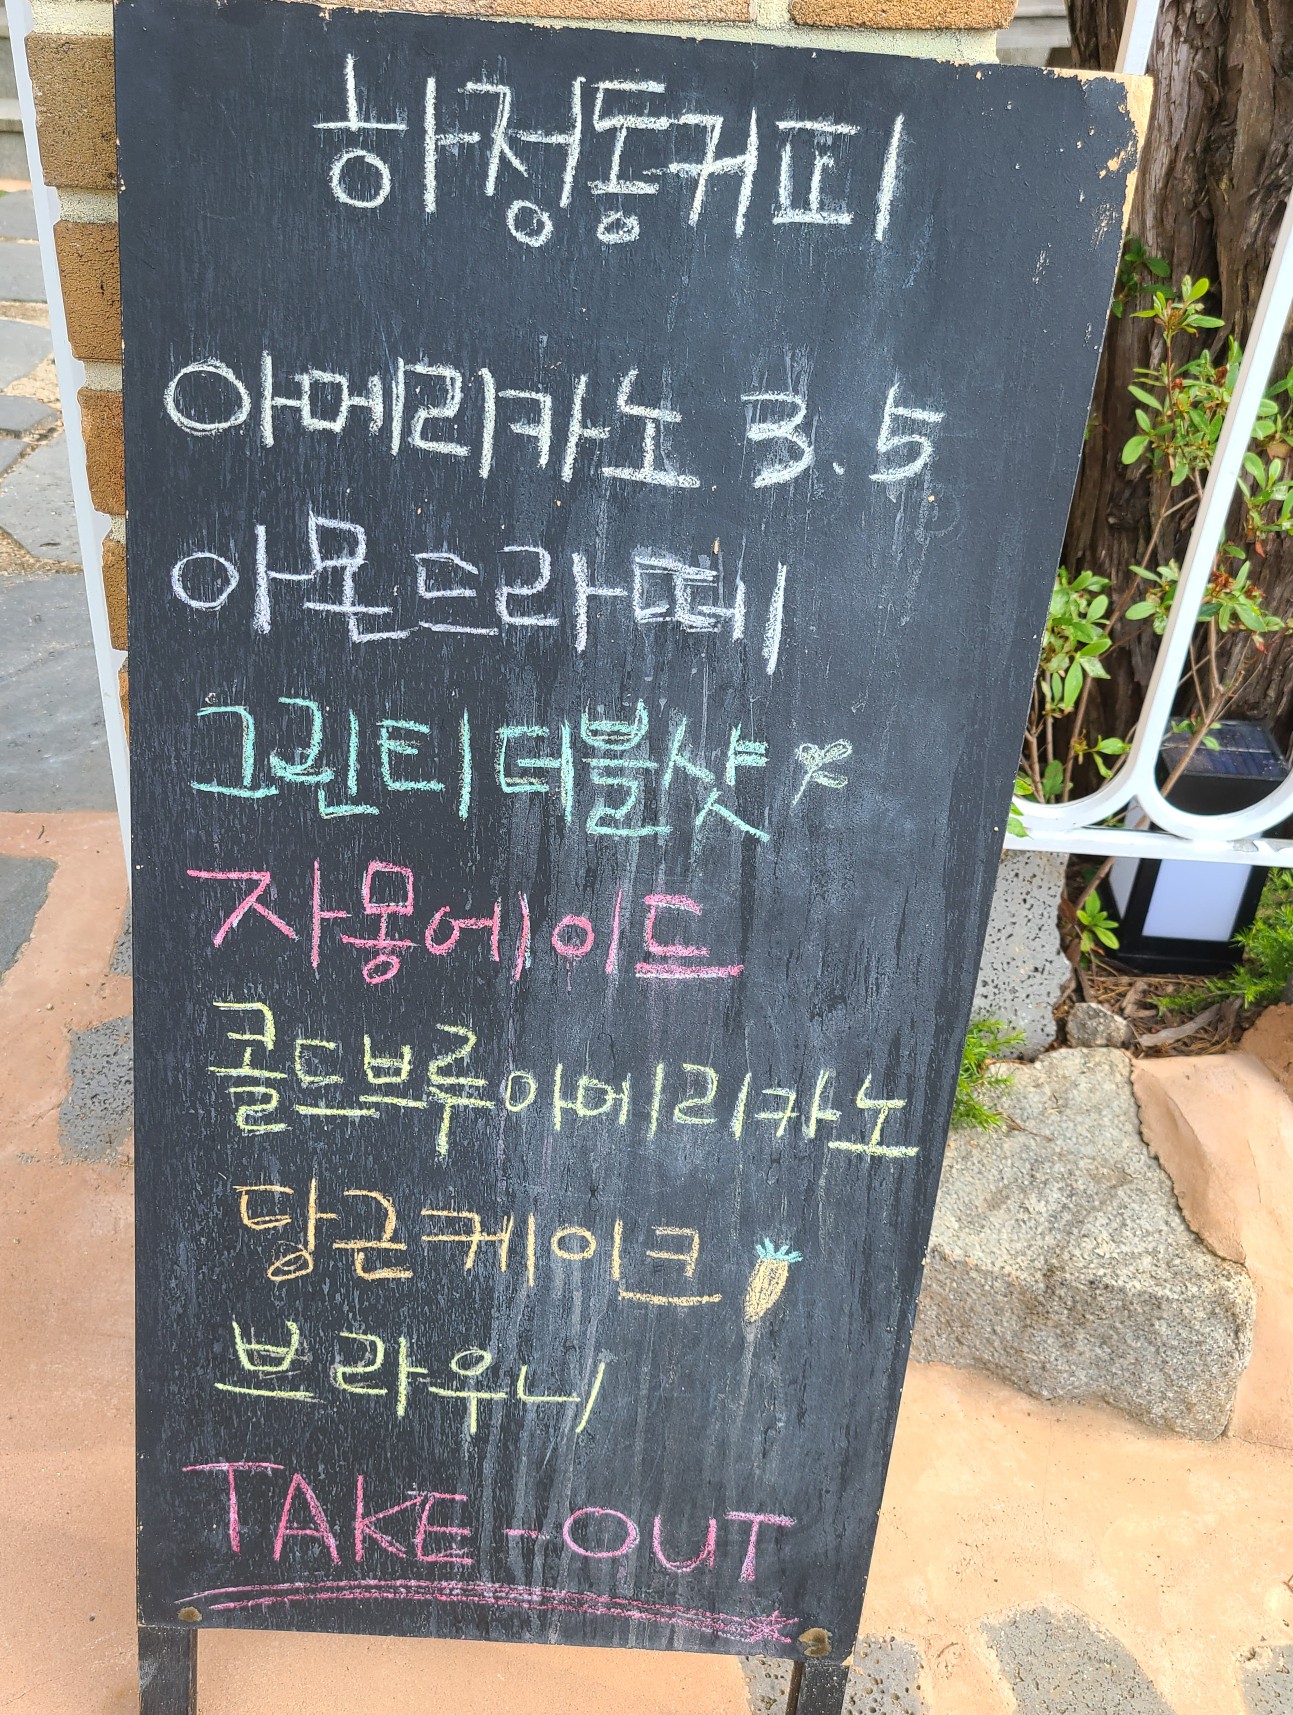 하정동커피
아메리카노 3.5
아몬드라떼
그린티더블샷
자몽에이드
콜드브루아메리카노
당근케이크
브라우니
TAKE-OUT